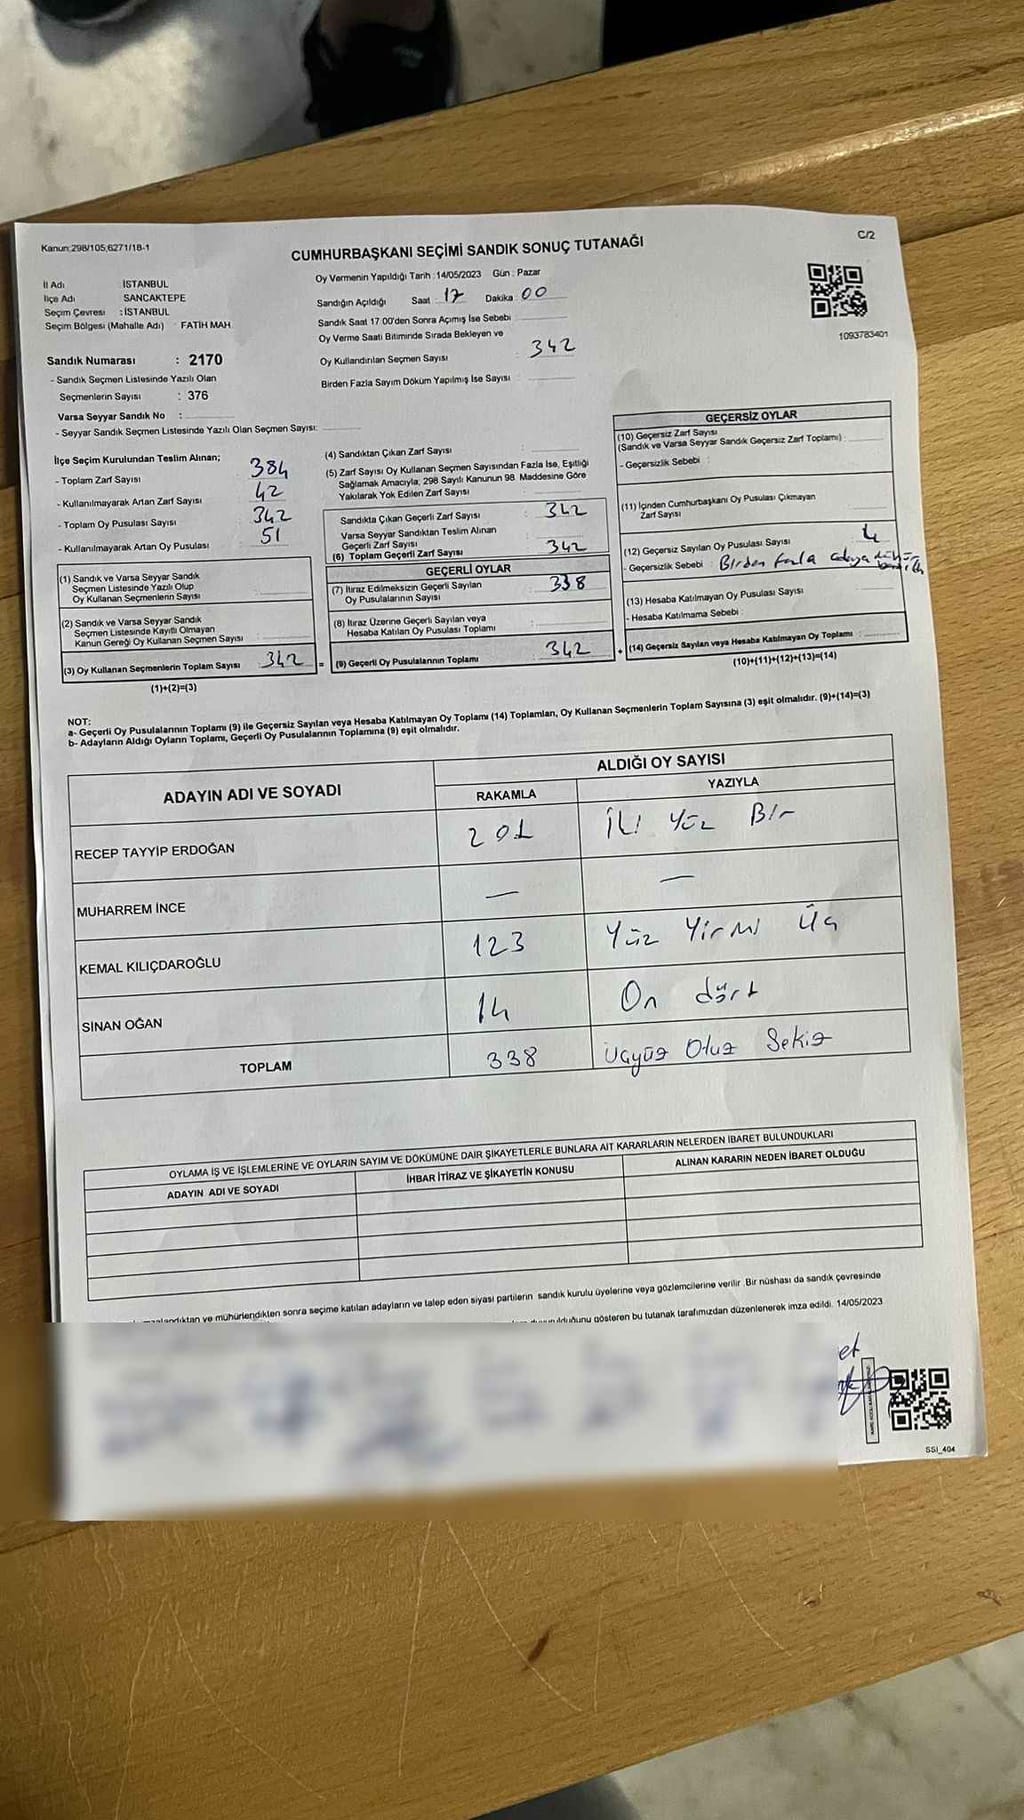 Kanun:298/105,6271/18-1
C/2
CUMHURBAŞKANI SEÇİMİ SANDIK SONUÇ TUTANAĞI
İl Adı : İSTANBUL
İlçe Adı : SANCAKTEPE
Seçim Çevresi : İSTANBUL
Seçim Bölgesi (Mahalle Adı) : FATİH MAH.
Sandık Numarası : 2170
- Sandık Seçmen Listesinde Yazılı Olan
Seçmenlerin Sayısı : 376
Varsa Seyyar Sandık No :
- Seyyar Sandık Seçmen Listesinde Yazılı Olan Seçmen Sayısı:
Oy Vermenin Yapıldığı Tarih : 14/05/2023 Gün : Pazar
Sandığın Açıldığı Saat 17 Dakika 00
Sandık Saat 17.00'den Sonra Açımış İse Sebebi :
Oy Verme Saati Bitiminde Sırada Bekleyen ve
Oy Kullandırılan Seçmen Sayısı : 342
Birden Fazla Sayım Döküm Yapılmış İse Sayısı :
1093783401
İlçe Seçim Kurulundan Teslim Alınan;
- Toplam Zarf Sayısı : 384
- Kullanılmayarak Artan Zarf Sayısı : 42
- Toplam Oy Pusulası Sayısı : 342
- Kullanılmayarak Artan Oy Pusulası : 51
(1) Sandık ve Varsa Seyyar Sandık
Seçmen Listesinde Yazılı Olup
Oy Kullanan Seçmenlerin Sayısı :
(2) Sandık ve Varsa Seyyar Sandık
Seçmen Listesinde Kayıtlı Olmayan
Kanun Gereği Oy Kullanan Seçmen Sayısı :
(3) Oy Kullanan Seçmenlerin Toplam Sayısı : 342 =
(1)+(2)=(3)
(4) Sandıktan Çıkan Zarf Sayısı :
(5) Zarf Sayısı Oy Kullanan Seçmen Sayısından Fazla İse, Eşitliği
Sağlamak Amacıyla, 298 Sayılı Kanunun 98. Maddesine Göre
Yakılarak Yok Edilen Zarf Sayısı :
Sandıkta Çıkan Geçerli Zarf Sayısı : 342
Varsa Seyyar Sandıktan Teslim Alınan
Geçerli Zarf Sayısı :
(6) Toplam Geçerli Zarf Sayısı : 342
GEÇERLİ OYLAR
(7) İtiraz Edilmeksizin Geçerli Sayılan
Oy Pusulalarının Sayısı : 338
(8) İtiraz Üzerine Geçerli Sayılan veya
Hesaba Katılan Oy Pusulası Toplamı :
(9) Geçerli Oy Pusulalarının Toplamı : 342 +
GEÇERSİZ OYLAR
(10) Geçersiz Zarf Sayısı
(Sandık ve Varsa Seyyar Sandık Geçersiz Zarf Toplamı) :
- Geçersizlik Sebebi :
(11) İçinden Cumhurbaşkanı Oy Pusulası Çıkmayan
Zarf Sayısı :
(12) Geçersiz Sayılan Oy Pusulası Sayısı : 4
- Geçersizlik Sebebi : Birden fazla adaya
(13) Hesaba Katılmayan Oy Pusulası Sayısı :
- Hesaba Katılmama Sebebi :
(14) Geçersiz Sayılan veya Hesaba Katılmayan Oy Toplamı :
(10)+(11)+(12)+(13)=(14)
NOT:
a- Geçerli Oy Pusulalarının Toplamı (9) ile Geçersiz Sayılan veya Hesaba Katılmayan Oy Toplamı (14) Toplamları, Oy Kullanan Seçmenlerin Toplam Sayısına (3) eşit olmalıdır. (9)+(14)=(3)
b- Adayların Aldığı Oyların Toplamı, Geçerli Oy Pusulalarının Toplamına (9) eşit olmalıdır.
ADAYIN ADI VE SOYADI
ALDIĞI OY SAYISI
RAKAMLA YAZIYLA
RECEP TAYYİP ERDOĞAN 201 İki Yüz Bir
MUHARREM İNCE — —
KEMAL KILIÇDAROĞLU 123 Yüz Yirmi Üç
SİNAN OĞAN 14 On dört
TOPLAM 338 Üçyüz Otuz Sekiz
OYLAMA İŞ VE İŞLEMLERİNE VE OYLARIN SAYIM VE DÖKÜMÜNE DAİR ŞİKAYETLERLE BUNLARA AİT KARARLARIN NELERDEN İBARET BULUNDUKLARI
ADAYIN ADI VE SOYADI
İHBAR İTİRAZ VE ŞİKAYETİN KONUSU
ALINAN KARARIN NEDEN İBARET OLDUĞU
ve mühürlendikten sonra seçime katılan adayların ve talep eden siyasi partilerin sandık kurulu üyelerine veya gözlemcilerine verilir. Bir nüshası da sandık çevresinde
gösteren bu tutanak tarafımızdan düzenlenerek imza edildi. 14/05/2023
SSI_404